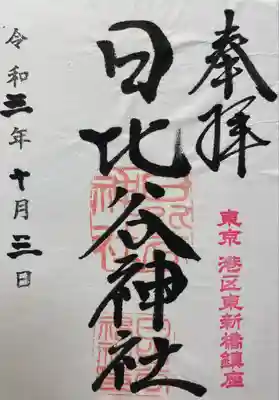 奉拝
東京 港区東新橋鎮座
日比谷神社
令和三年十月三日